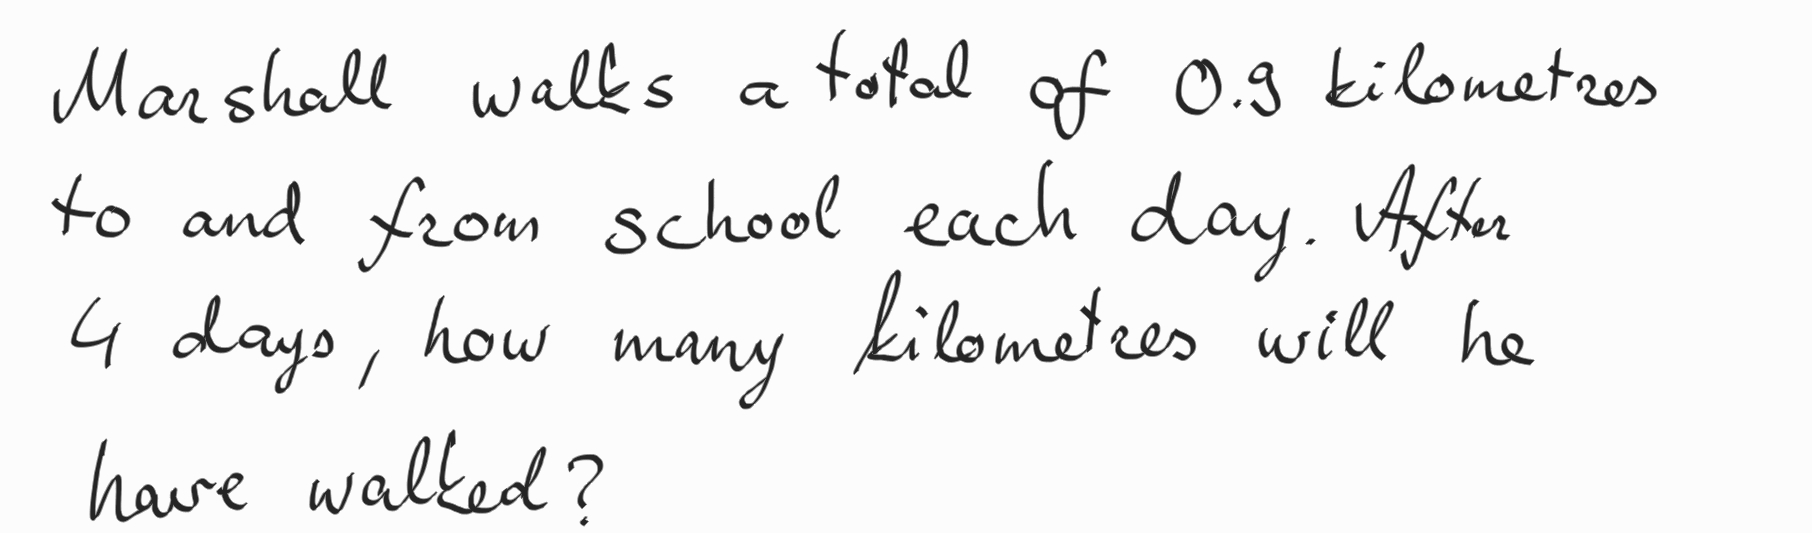 Marshall walks a total of 0.9 kilometres
to and from school each day. After
4 days, how many kilometres will he
have walked?